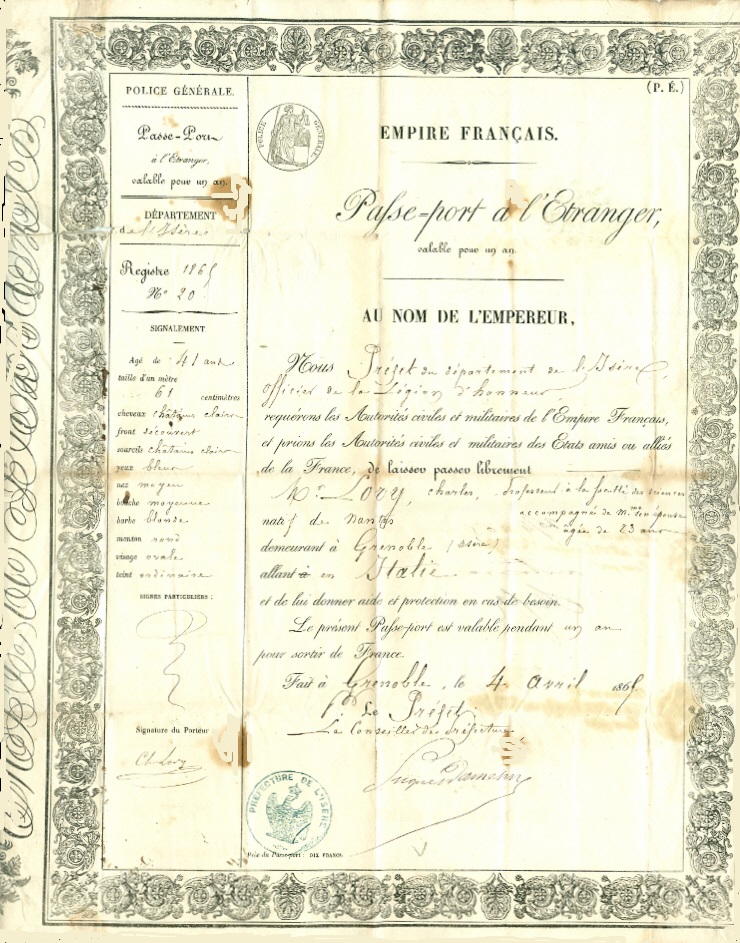 POLICE GÉNÉRALE.
Passe-Port
à l'Etranger,
valable pour un an.
DÉPARTEMENT
de l'Isère
Registre 1865
N° 20
SIGNALEMENT
Agé de 41 ans
taille d'un mètre
61 centimètres
cheveux châtains clairs
front découvert
sourcils châtains clairs
yeux bleus
nez moyen
bouche moyenne
barbe blonde
menton rond
visage ovale
teint ordinaire
SIGNES PARTICULIERS :
Signature du Porteur
Ch Lory
(P. É.)
POLICE GÉNÉRALE
EMPIRE FRANÇAIS.
Passe-port à l'Etranger,
valable pour un an.
AU NOM DE L'EMPEREUR,
Nous Préfet du département de l'Isère,
officier de la Légion d'honneur
requérons les Autorités civiles et militaires de l'Empire Français,
et prions les Autorités civiles et militaires des Etats amis ou alliés
de la France, de laisser passer librement
Mr Lory, Charles, Professeur à la faculté des sciences
accompagné de Mme son épouse
âgée de 23 ans
natif de Nantes
demeurant à Grenoble (Isère)
allant à en Italie
et de lui donner aide et protection en cas de besoin.
Le présent Passe-port est valable pendant un an
pour sortir de France.
Fait à Grenoble, le 4 avril 1865
Le Préfet
Le Conseiller de préfecture
PRÉFECTURE DE L'ISÈRE
Prix du Passe-port : DIX FRANCS.